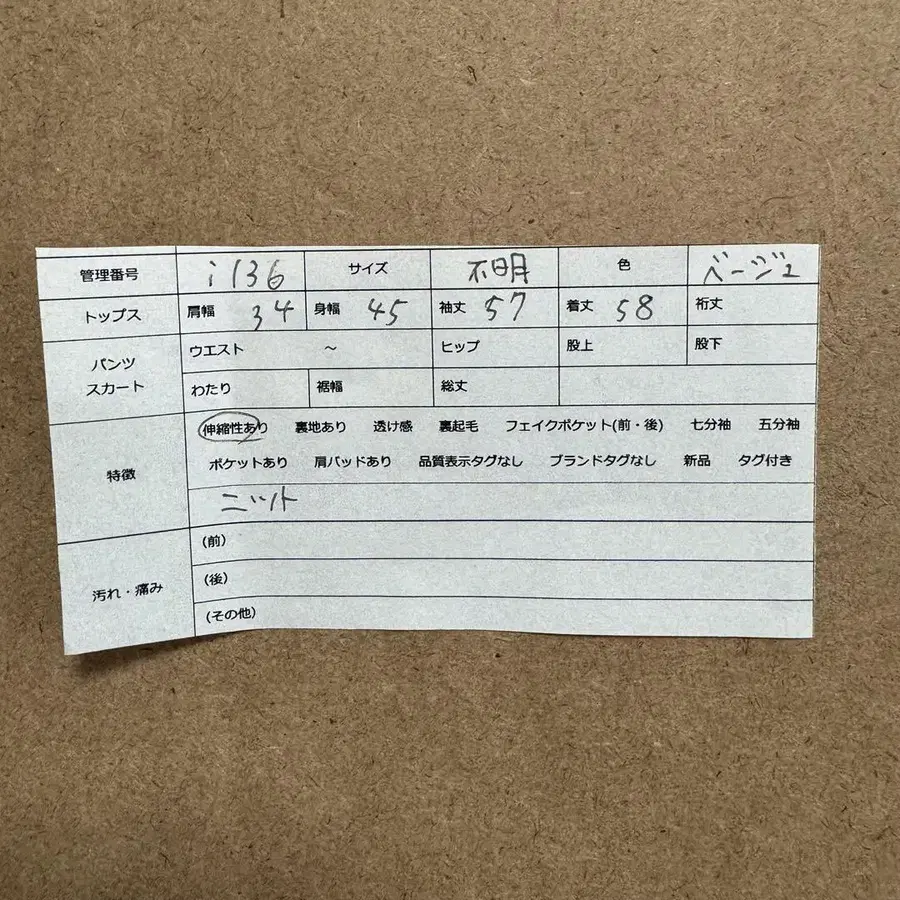 管理番号 i136 サイズ 不明 色 ベージュ
トップス 肩幅 34 身幅 45 袖丈 57 着丈 58 裄丈
パンツ スカート ウエスト ～ ヒップ 股上 股下
わたり 裾幅 総丈
特徴 伸縮性あり 裏地あり 透け感 裏起毛 フェイクポケット(前・後) 七分袖 五分袖
ポケットあり 肩パッドあり 品質表示タグなし ブランドタグなし 新品 タグ付き
ニット
汚れ・痛み (前)
(後)
(その他)